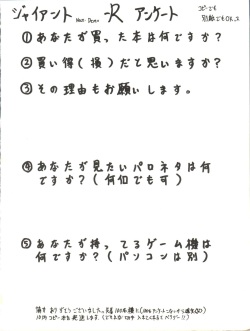 ジャイアント -R アンケート
コピーでも
別紙でもOKよ
① あなたが買った本は何ですか?
② 買い得(損)だと思いますか?
③ その理由もお願いします。
④ あなたが見たいパロネタは何
ですか?(何個でも可)
⑤ あなたが持ってるゲーム機は
何ですか?(パソコンは別)